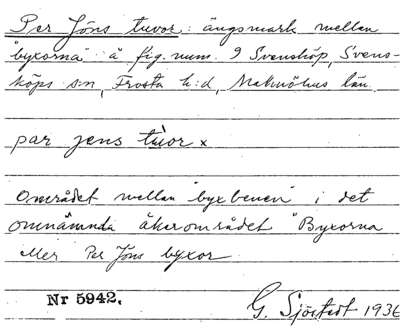 Per Jöns tuvor: ängsmark mellan
"byxorna" å fig. num. 9 Svensköp, Svens-
köps s:n, Frosta h:d, Malmöhus län.
par jens tùor x
Området mellan "byxbenen" i det
omnämnda åkerområdet "Byxorna
eller Per Jöns byxor
Nr 5942.
G. Sjöstedt 1936